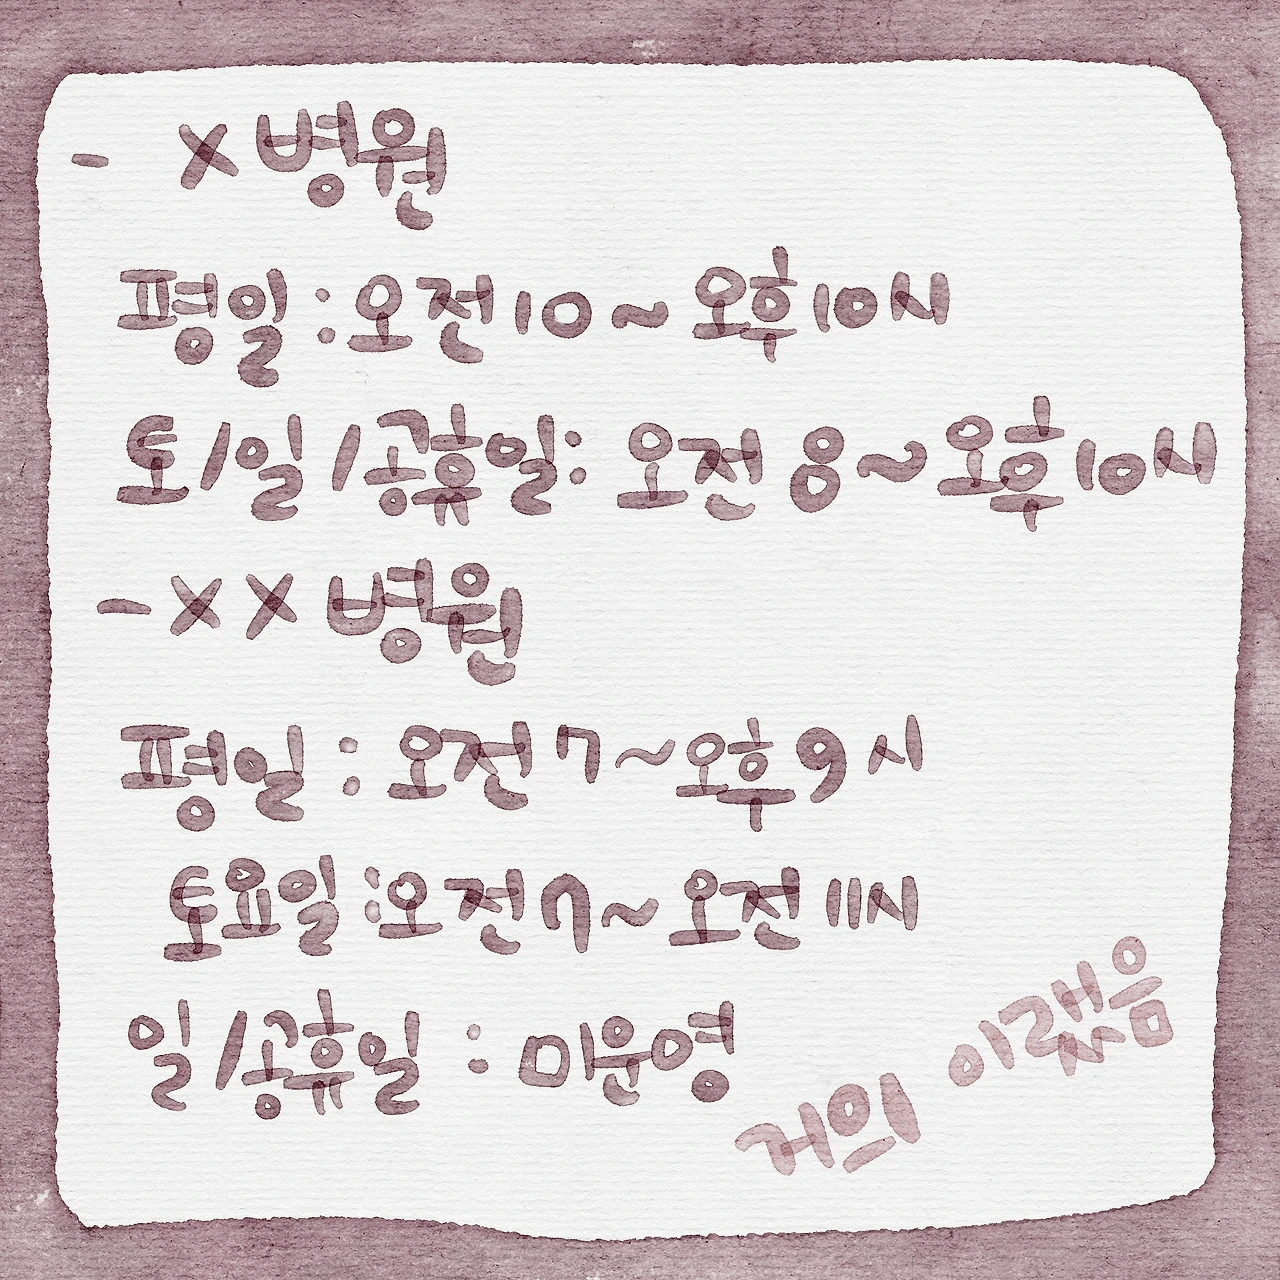 - X 병원
평일 : 오전 10 ~ 오후 10시
토/일/공휴일: 오전 8 ~ 오후 10시
- X X 병원
평일 : 오전 7 ~ 오후 9시
토요일 : 오전 7 ~ 오전 11시
일/공휴일 : 미운영
거의 이랬음